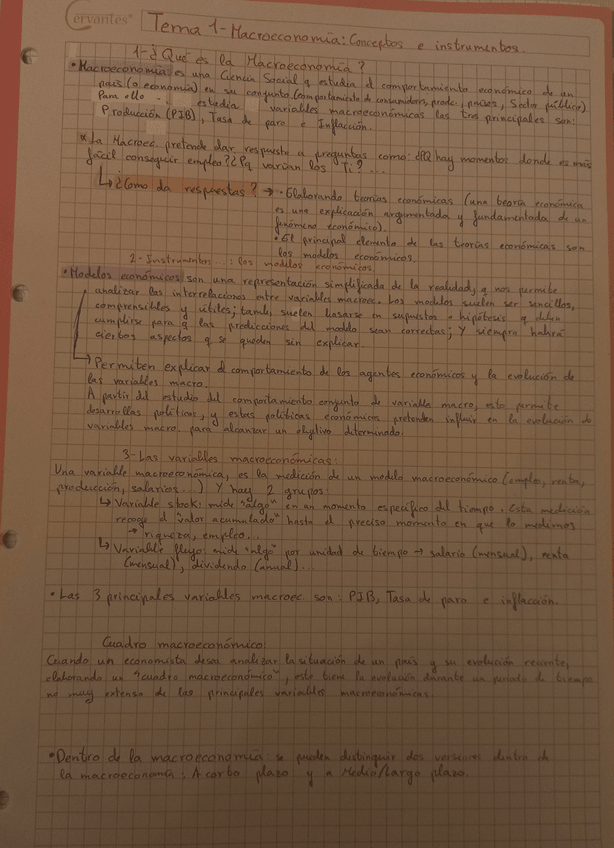 Cervantes
Tema 1 - Macroeconomía: Conceptos e instrumentos.
1- ¿Qué es la Macroeconomía?
• Macroeconomía es una Ciencia Social q estudia el comportamiento económico de un
país (o economía) en su conjunto (comportamiento de consumidores, produc, países, Sector público)
Para ello estudia variables macroeconómicas las tres principales son:
Producción (PIB), Tasa de paro e Inflación.
* La Macroec. pretende dar respuesta a preguntas como: ¿PQ hay momentos donde es más
fácil conseguir empleo? ¿Pq varían los Ti? ...
↳ ¿Como da respuestas? → • Elaborando teorías económicas (una teoría económica
es una explicación argumentada y fundamentada de un
fenómeno económico).
• El principal elemento de las teorías económicas son
los modelos económicos.
2- Instrumentos ...: los modelos económicos.
• Modelos económicos son una representación simplificada de la realidad, q nos permite
analizar las interrelaciones entre variables macroec. Los modelos suelen ser sencillos,
comprensibles y útiles; tamb, suelen basarse en supuestos e hipótesis q deben
cumplirse para q las predicciones del modelo sean correctas; Y siempre habrá
ciertos aspectos q se queden sin explicar.
↳ Permiten explicar el comportamiento de los agentes económicos y la evolución de
las variables macro.
A partir del estudio del comportamiento conjunto de variable macro, esto permite
desarrollas políticas, y estas políticas económicas pretenden influir en la evolución de
variables macro. para alcanzar un objetivo determinado.
3- Las variables macroeconómicas:
Una variable macroeconómica, es la medición de un modelo macroeconómico (empleo, renta,
producción, salarios...) Y hay 2 grupos:
↳ Variable stock: mide "algo" en un momento específico del tiempo. Esta medición
recoge el "valor acumulado" hasta el preciso momento en que lo medimos
→ riqueza, empleo...
↳ Variable flujo: mide "algo" por unidad de tiempo → salario (mensual), renta
(mensual), dividendo (anual)...
• Las 3 principales variables macroec. son: PIB, Tasa de paro e inflación.
Cuadro macroeconómico:
Cuando un economista desea analizar la situación de un país y su evolución reciente,
elaborando un "cuadro macroeconómico", este tiene la evolución durante un periodo de tiempo
no muy extenso de las principales variables macroeconómicas.
• Dentro de la macroeconomía se pueden distinguir dos versiones dentro de
la macroeconomía: A corto plazo y a Medio/Largo plazo.